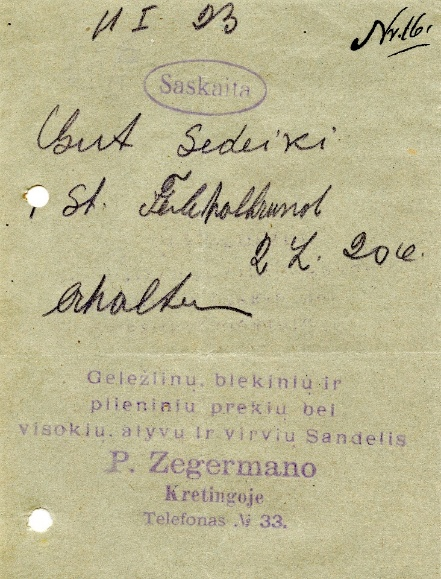 11 I 23
Nr. 16.
Saskaita
Gut Sedeiki
1 St.
2 L. 20 c.
erhalten
Geležiinu, blekinių ir
plieniniu prekiu bei
visokiu, alyvų ir virviu Sandelis
P. Zegermano
Kretingoje
Telefonas № 33.